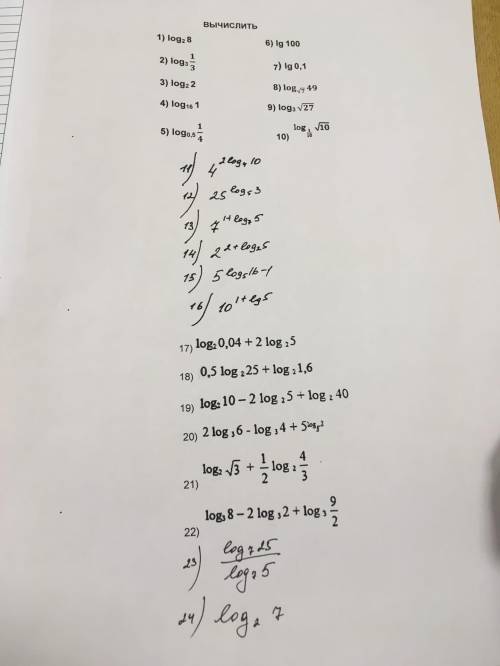 ВЫЧИСЛИТЬ
1) log₂ 8
6) lg 100
2) log₃ 1/3
7) lg 0,1
3) log₂ 2
8) log_√7 49
4) log₁₆ 1
9) log₃ √27
5) log₀,₅ 1/4
10) log_1/10 √10
11) 4^(2log₄10)
12) 25^(log₅3)
13) 7^(1+log₇5)
14) 2^(2+log₂5)
15) 5^(log₅16−1)
16) 10^(1+lg5)
17) log₂ 0,04 + 2 log₂ 5
18) 0,5 log₂ 25 + log₂ 1,6
19) log₂ 10 − 2 log₂ 5 + log₂ 40
20) 2 log₃ 6 - log₃ 4 + 5^(log₅2)
21) log₂ √3 + 1/2 log₂ 4/3
22) log₃ 8 − 2 log₃ 2 + log₃ 9/2
23) log₇ 25 / log₇ 5
24) log₂ 7